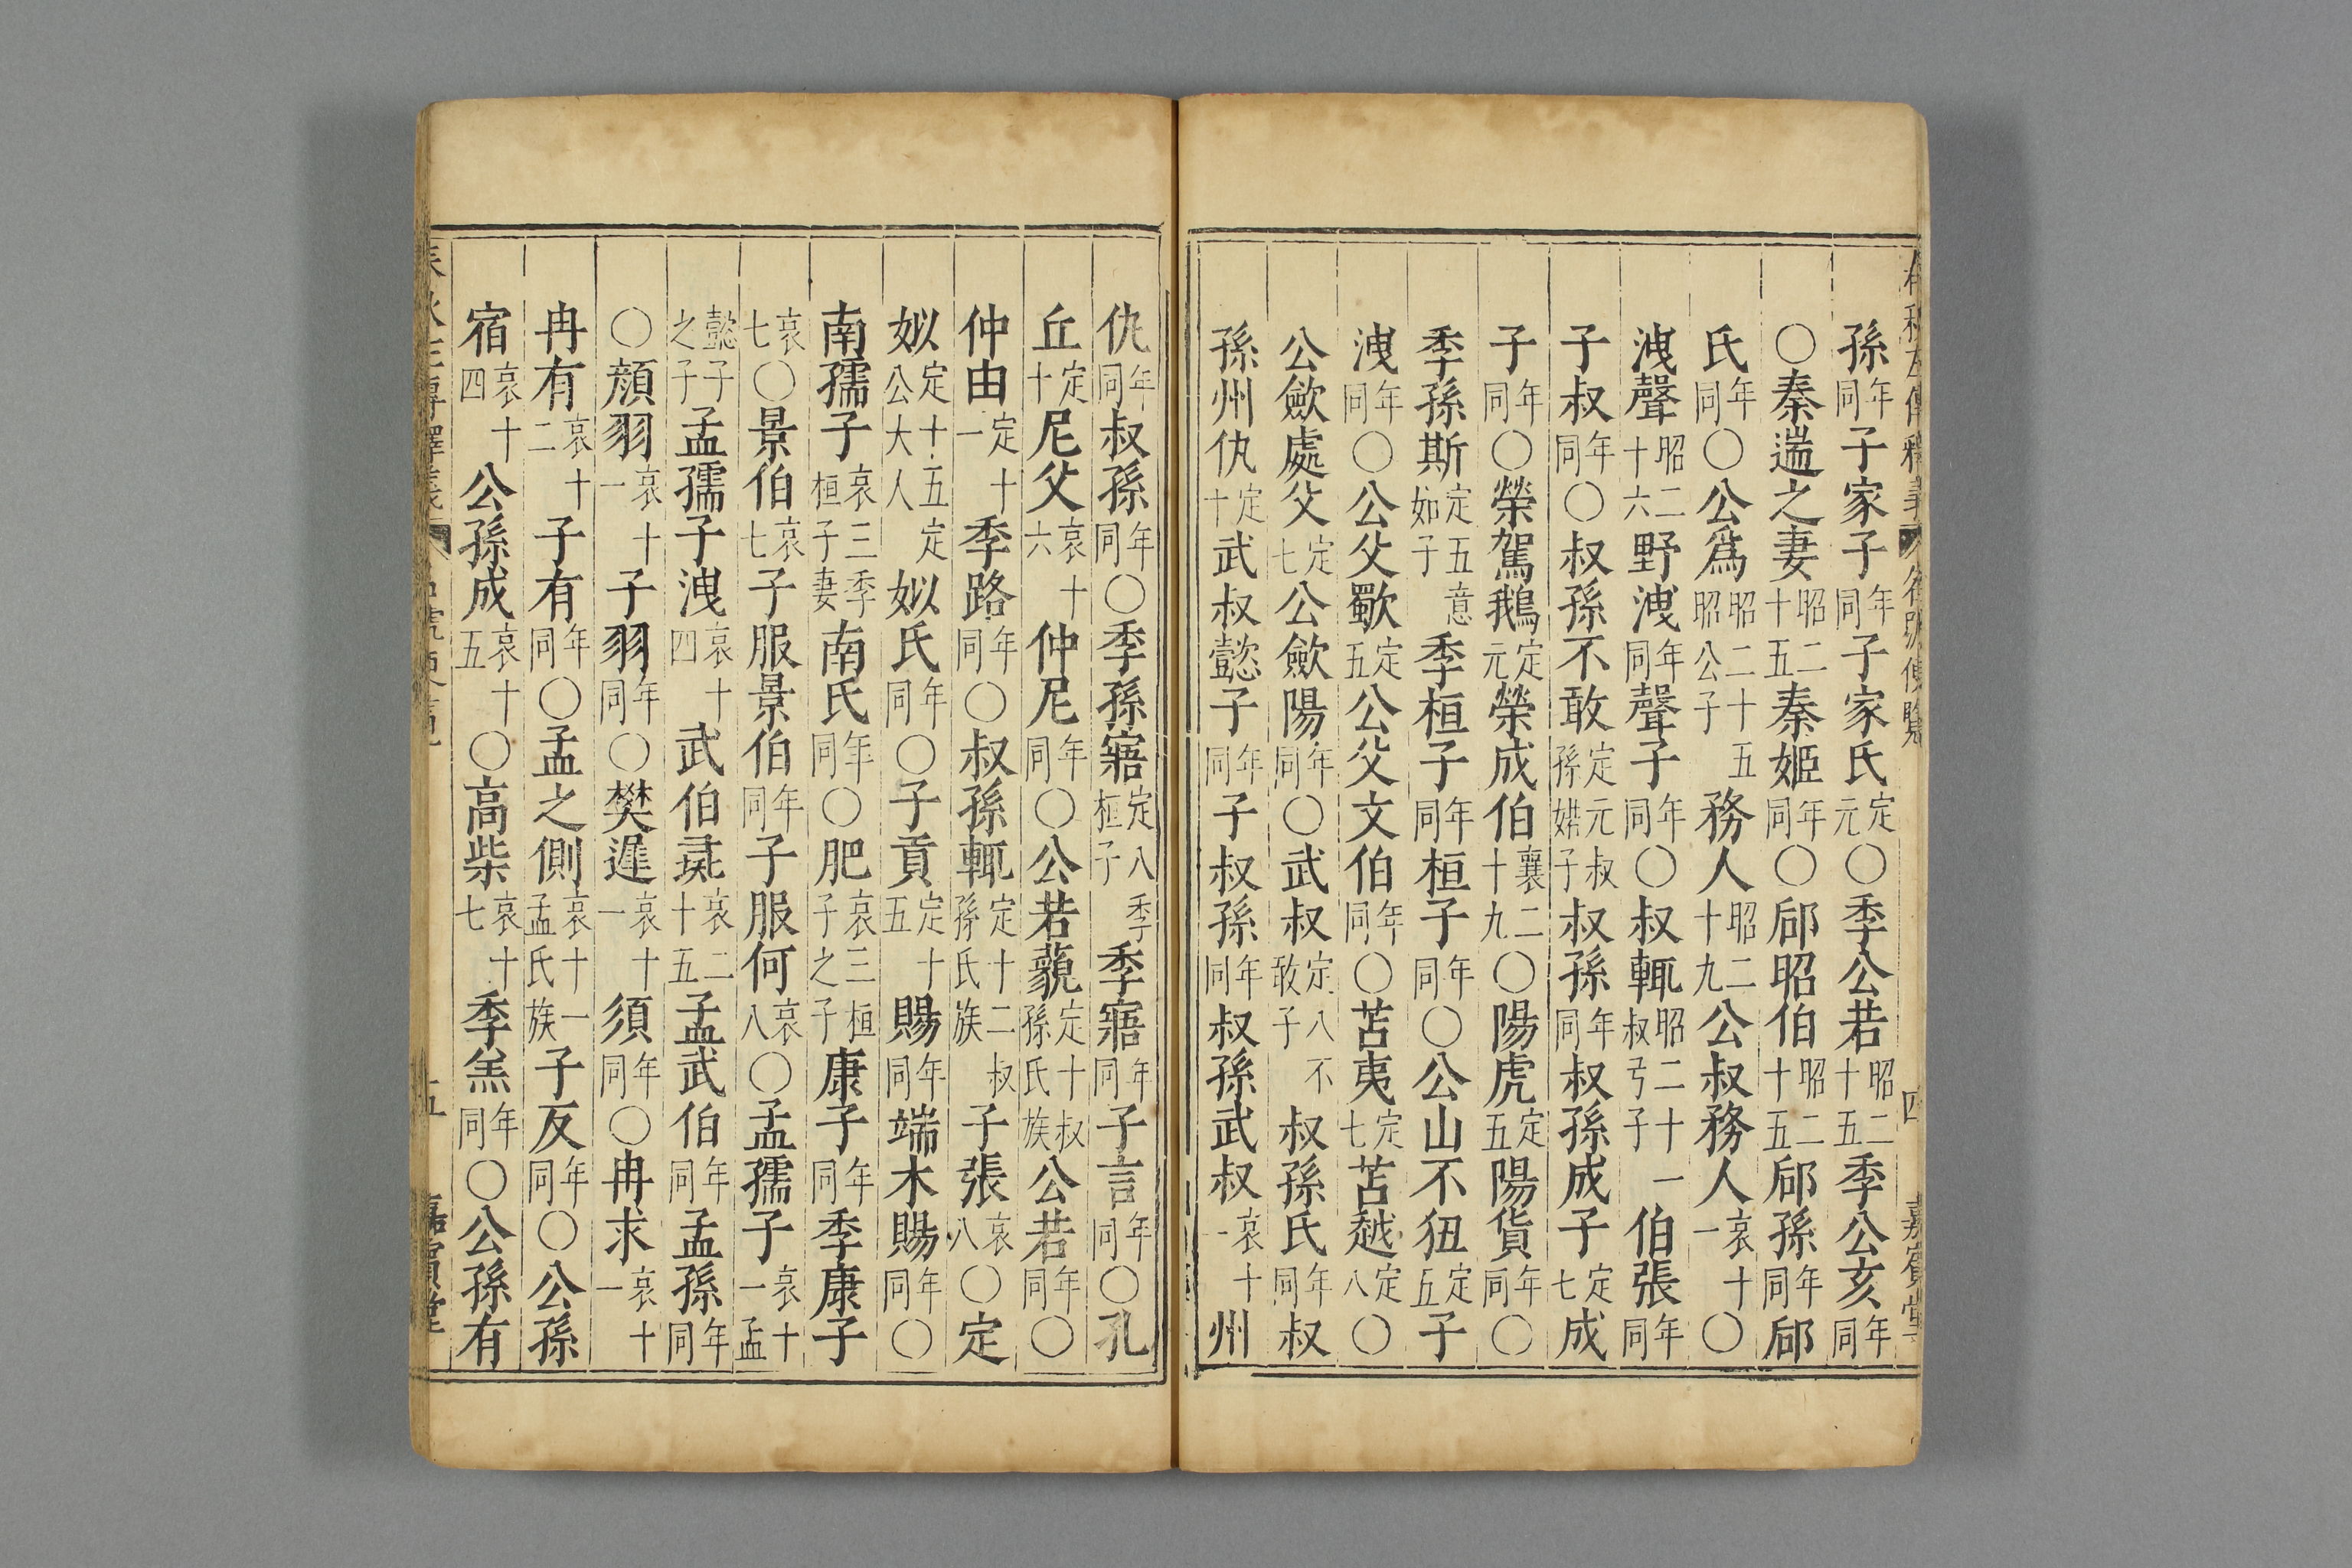 孫年同子家子年同子家氏定元〇季公若昭二十五季公亥年同
〇秦遄之妻昭二十五秦姬年同〇郈昭伯昭二十五郈孫年同郈
氏年同〇公爲昭二十五昭公子務人昭二十九公叔務人哀十一〇
洩聲昭二十六野洩年同聲子年同〇叔輒昭二十一叔弓子伯張年同
子叔年同〇叔孫不敢定元叔孫婼子叔孫年同叔孫成子定七成
子年同〇榮駕鵝定元榮成伯襄二十九〇陽虎定五陽貨年同〇
季孫斯定五意如子季桓子年同桓子年同〇公山不狃定五子
洩年同〇公父歜定五公父文伯年同〇苫夷定七苫越定八〇
公歛處父定七公歛陽年同〇武叔定八不敢子叔孫氏年同叔
孫州仇定十武叔懿子年同子叔孫年同叔孫武叔哀十一州
仇年同叔孫年同〇季孫寤定八季桓子季寤年同子言年同〇孔
丘定十尼父哀十六仲尼年同〇公若藐定十叔孫氏族公若年同〇
仲由定十一季路年同〇叔孫輒定十二叔孫氏族子張哀八〇定
姒定十五定公大人姒氏年同〇子貢定十五賜年同端木賜年同〇
南孺子哀三季桓子妻南氏年同〇肥哀三桓子之子康子年同季康子
哀七〇景伯哀七子服景伯年同子服何哀八〇孟孺子哀十一孟
懿子之子孟孺子洩哀十四武伯彘哀二十五孟武伯年同孟孫年同
〇顔羽哀十一子羽年同〇樊遲哀十一須年同〇冉求哀十一
冉有哀十二子有年同〇孟之側哀十一孟氏族子反年同〇公孫
宿哀十四公孫成哀十五〇高柴哀十七季羔年同〇公孫有